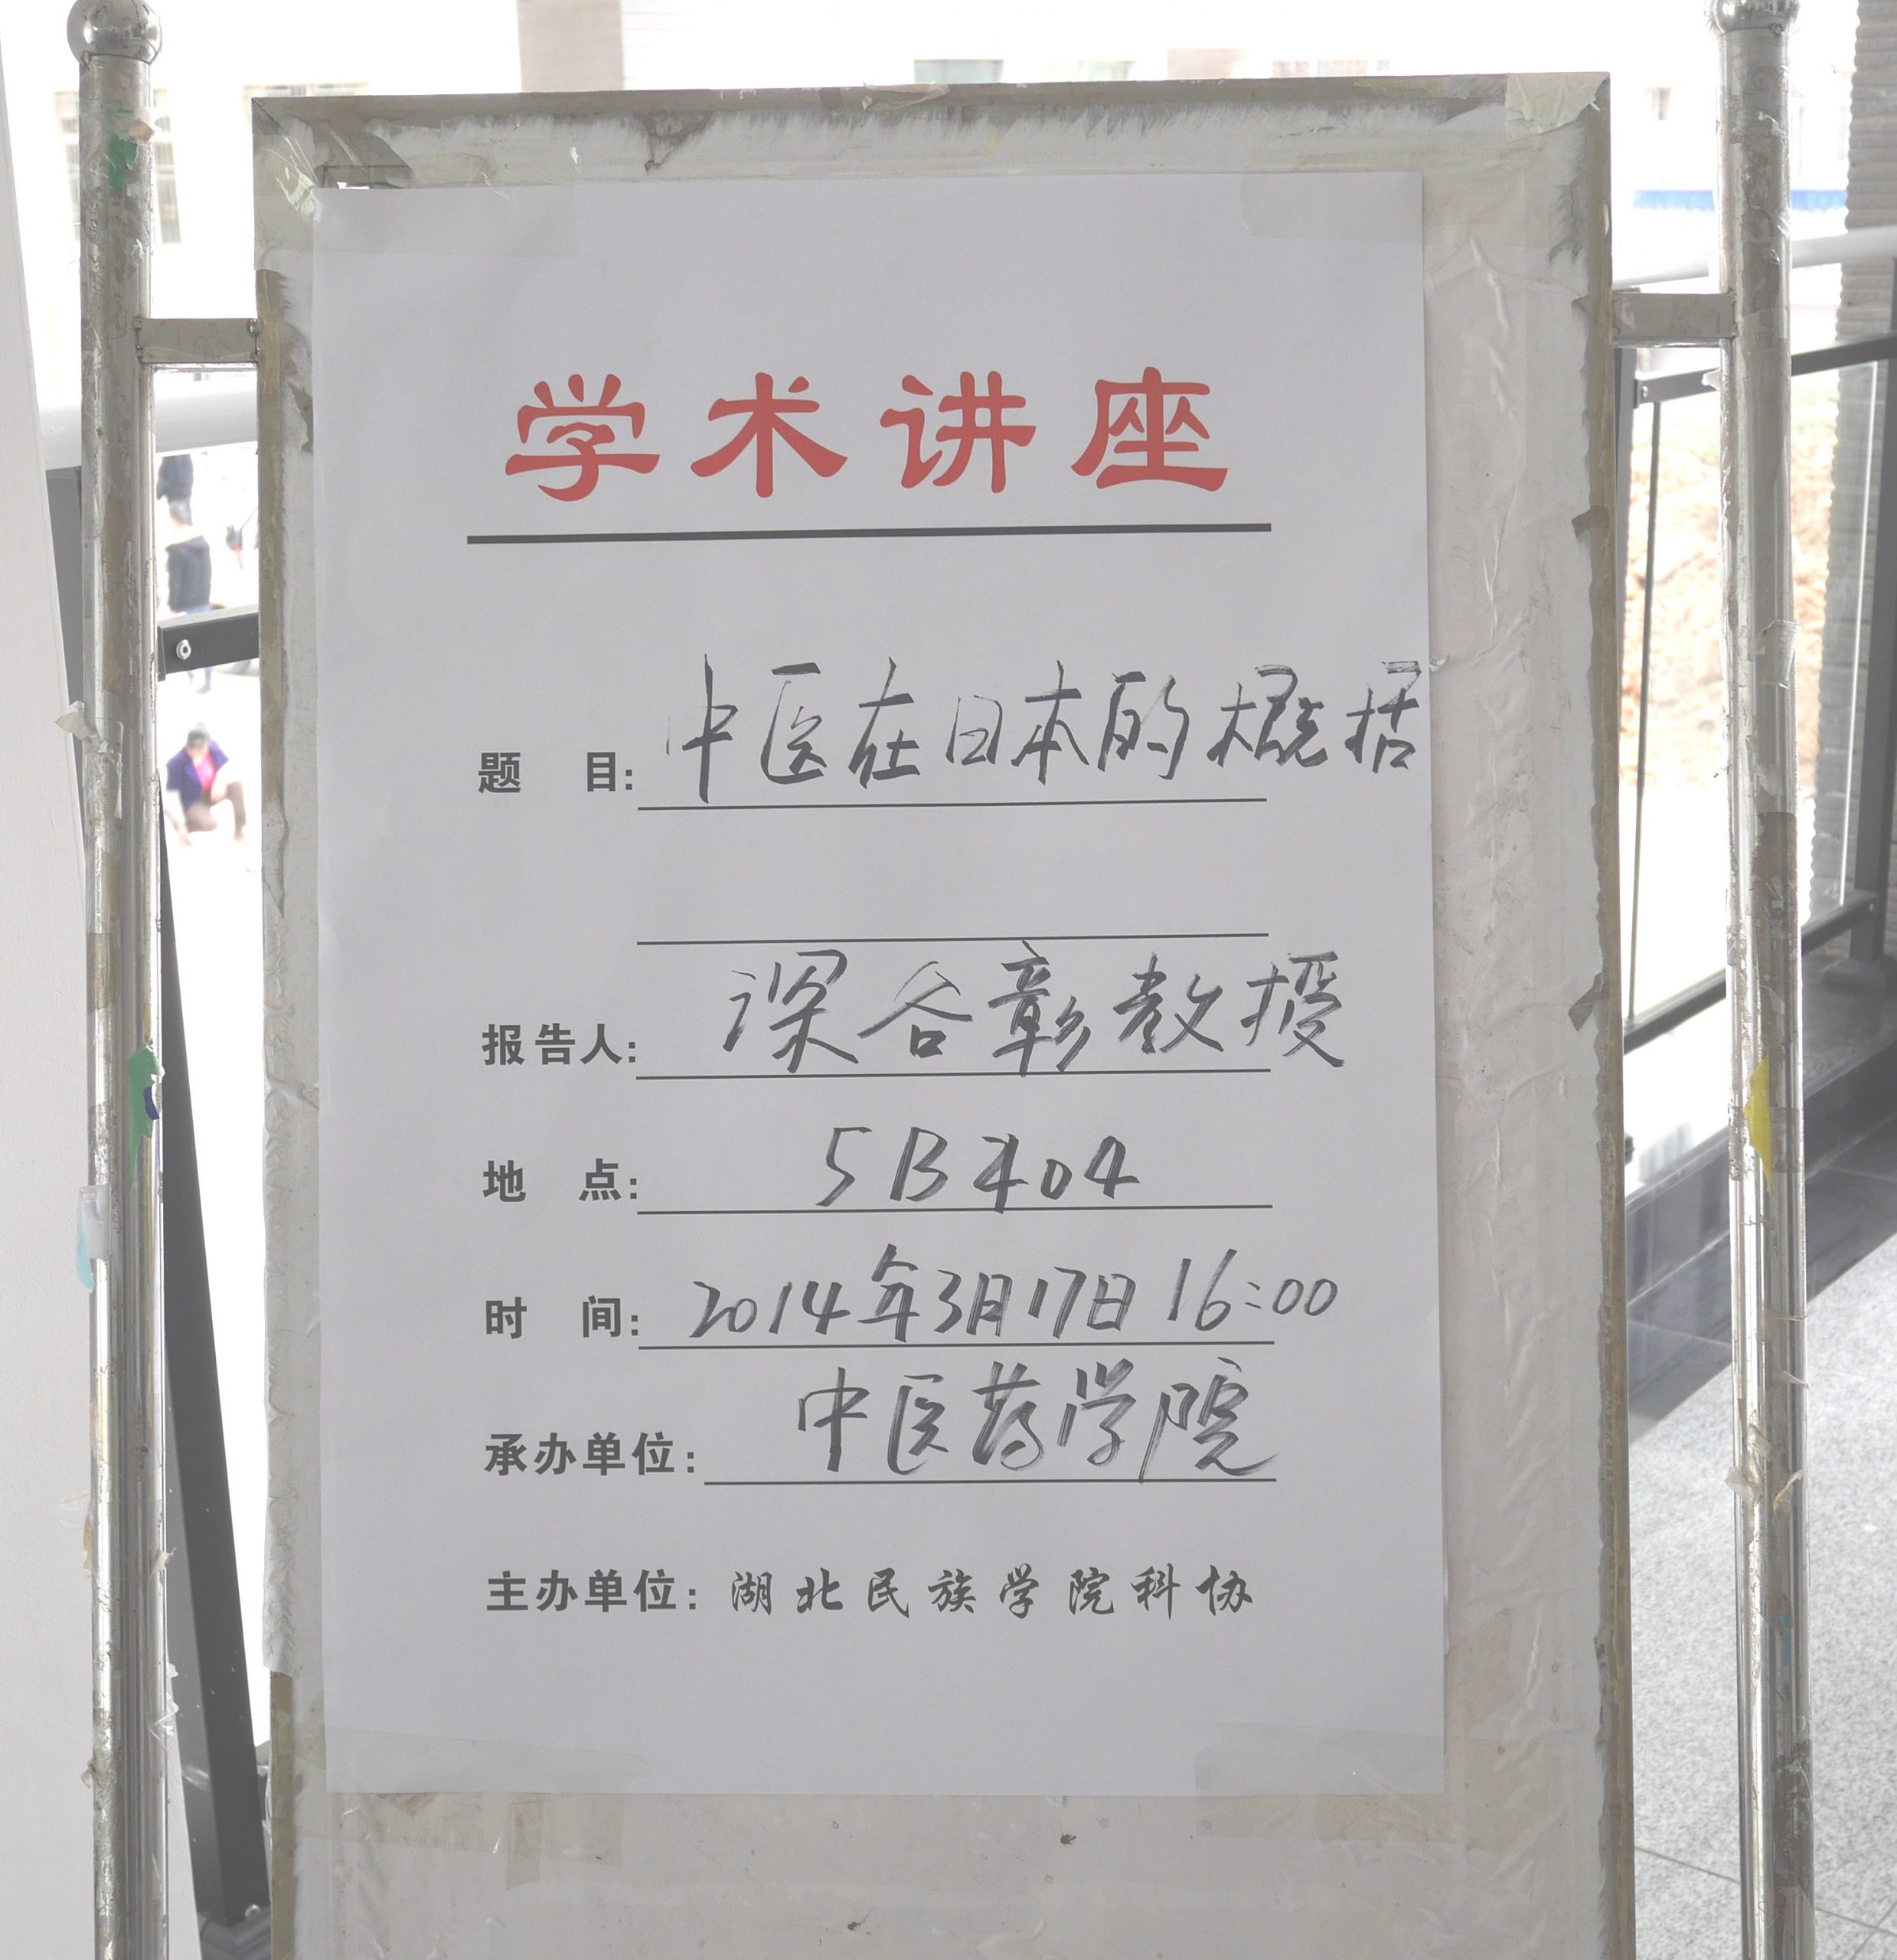 学术讲座
题 目: 中医在日本的概括
报告人: 深谷彰教授
地 点: 5B404
时 间: 2014年3月17日 16:00
承办单位: 中医药学院
主办单位: 湖北民族学院科协